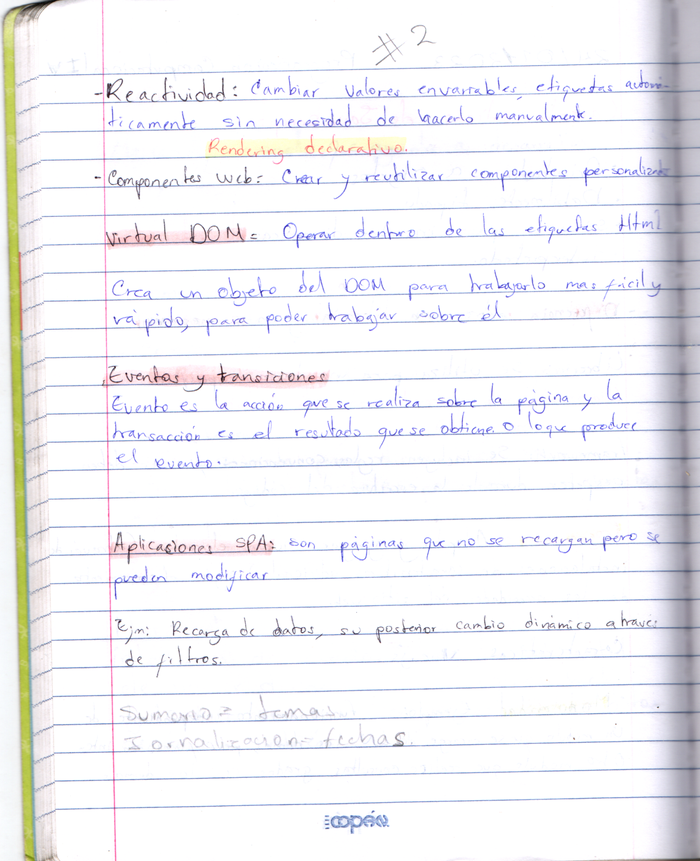 #2
- Reactividad: Cambiar valores envarrables, etiquetas automá-
ticamente sin necesidad de hacerlo manualmente.
Rendering declarativo.
- Componentes web: Crear y reutilizar componentes personalizados
Virtual DOM = Operar dentro de las etiquetas Html
Crea un objeto del DOM para trabajarlo mas fácil y
rápido, para poder trabajar sobre él
Eventos y transiciones
Evento es la acción que se realiza sobre la página y la
transacción es el resultado que se obtiene o lo que produce
el evento.
Aplicasiones SPA: son páginas que no se recargan pero se
pueden modificar
Ejm: Recarga de datos, su posterior cambio dinámico através
de filtros.
Sumario = temas
= fechas.
copán